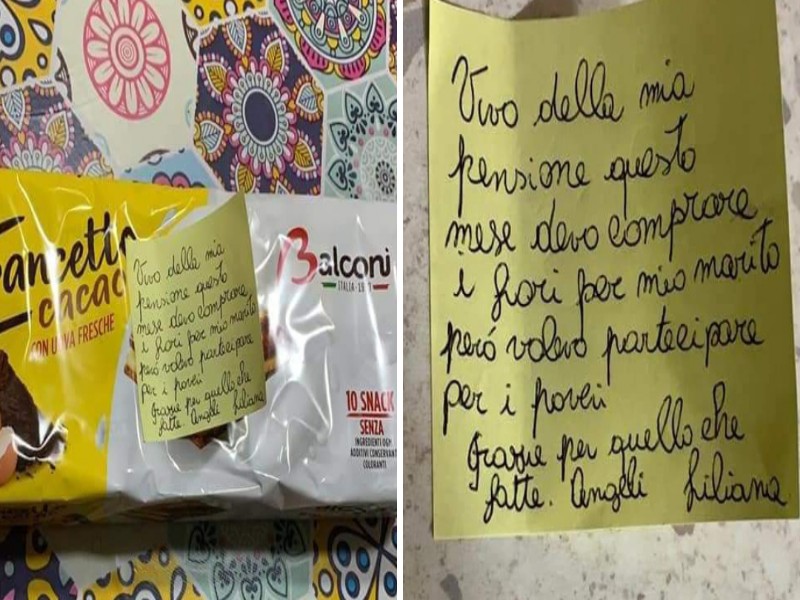 Trancetto
cacao
CON UOVA FRESCHE
Balconi
ITALIA - 19
10 SNACK
SENZA
INGREDIENTI OGM
ADDITIVI CONSERVANTI
COLORANTI
Vivo della mia
pensione questo
mese devo comprare
i fiori per mio marito
peró volevo partecipare
per i poveri
Grazie per quello che
fatte. Angeli Liliana
Vivo della mia
pensione questo
mese devo comprare
i fiori per mio marito
peró volevo partecipare
per i poveri
Grazie per quello che
fatte. Angeli Liliana